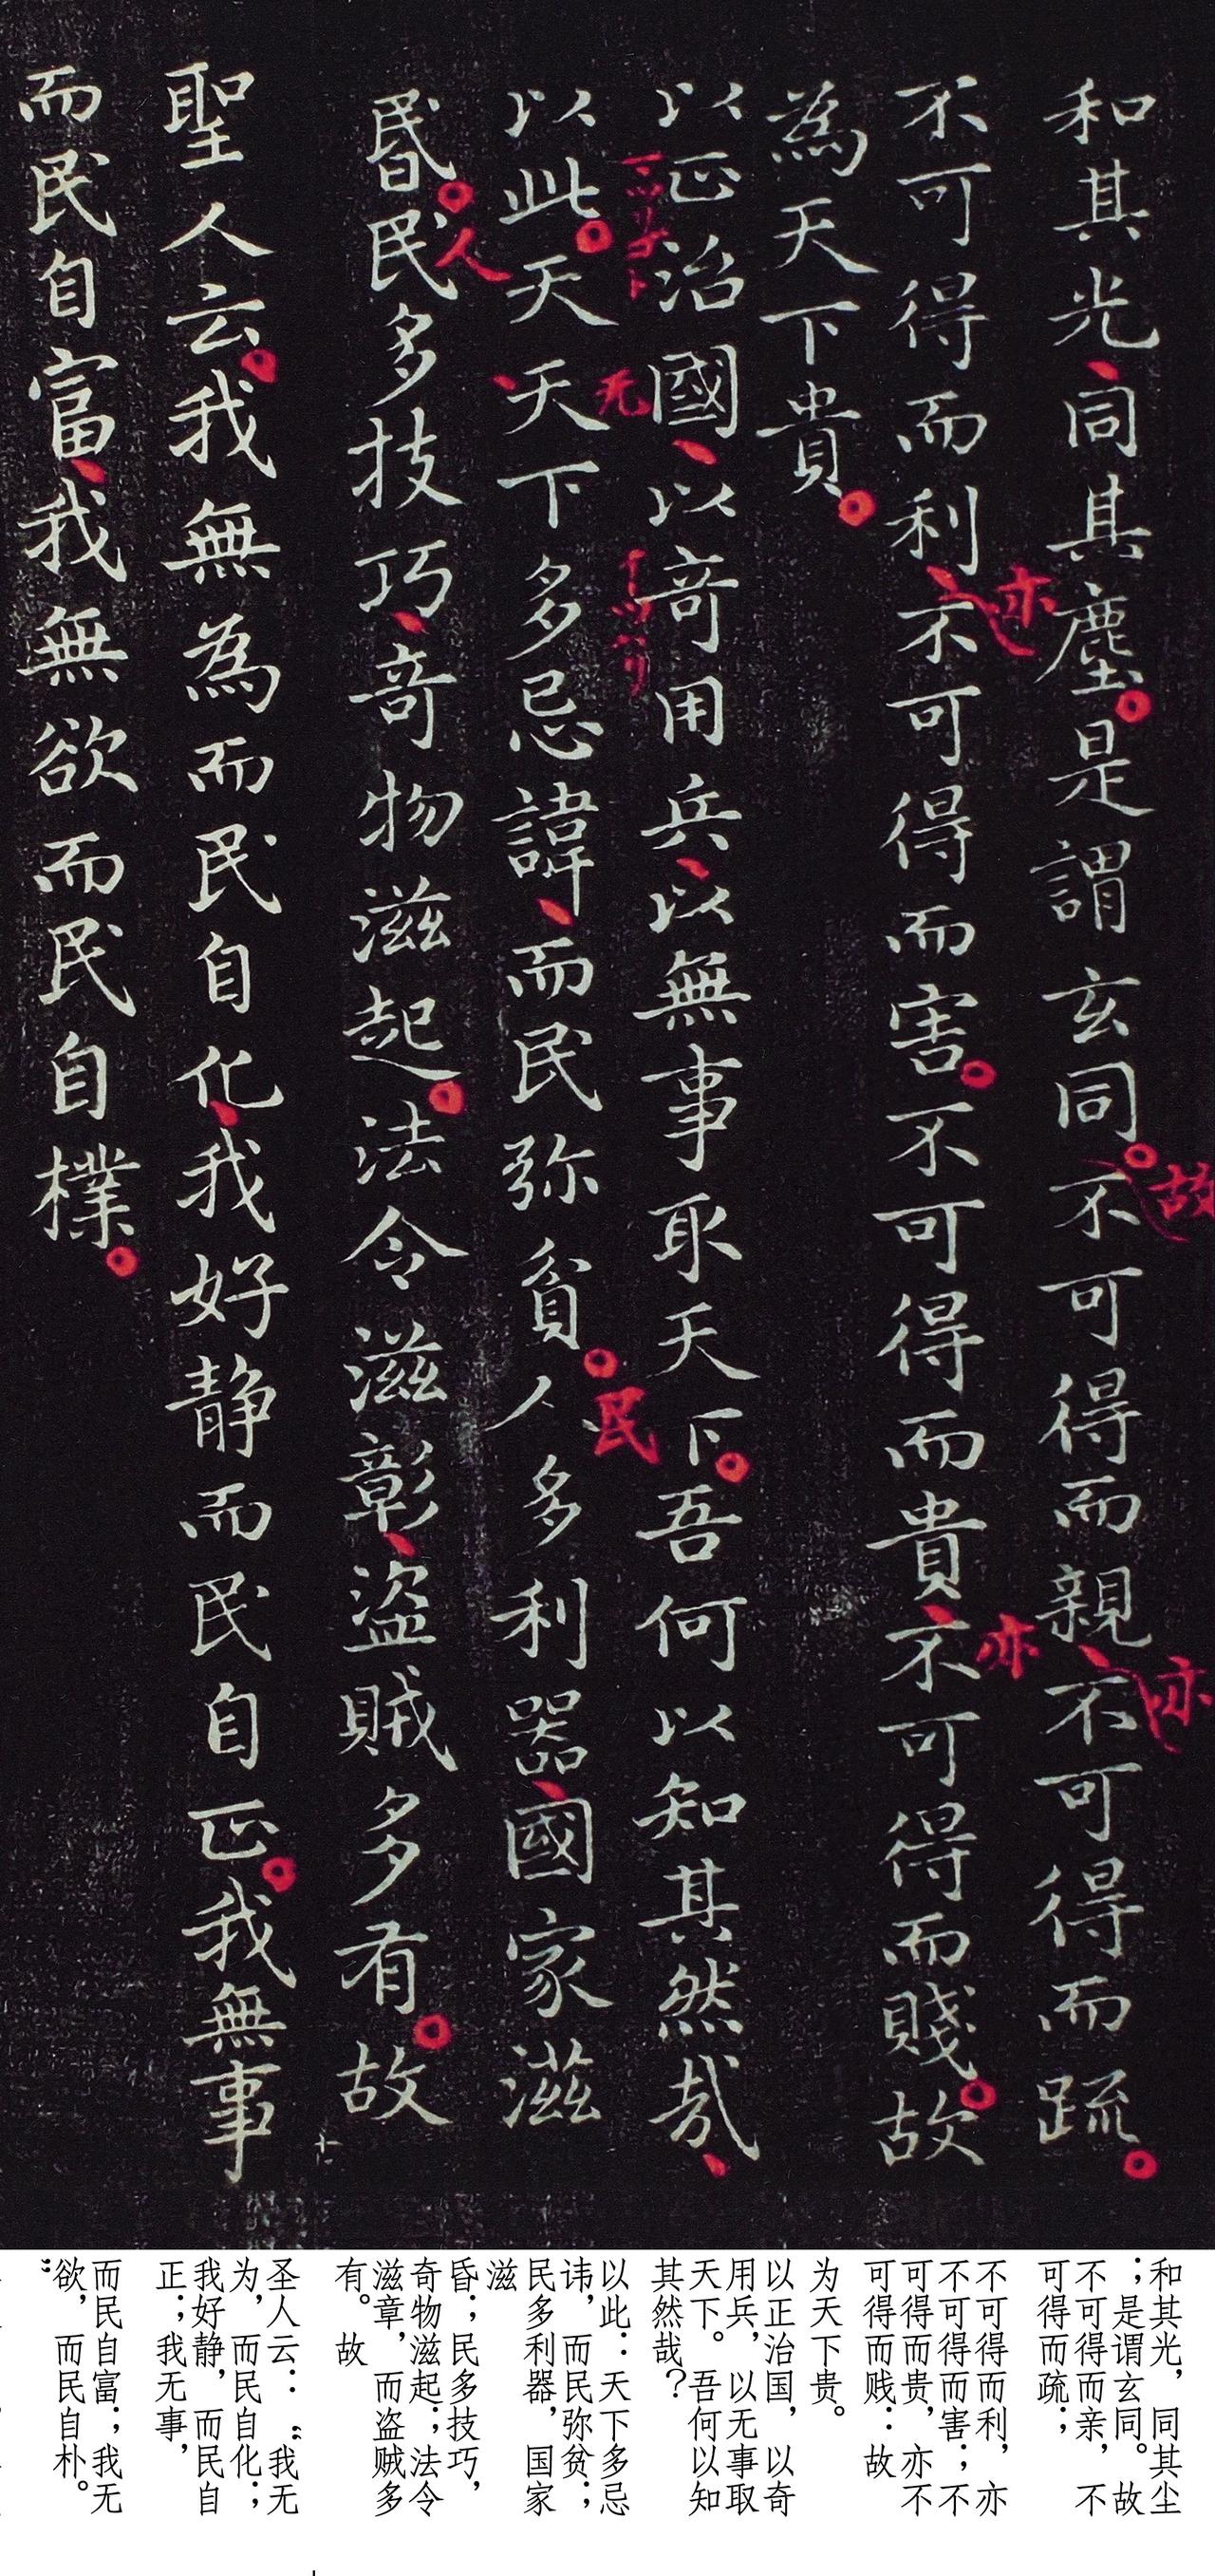 和其光同其塵是謂玄同不可得而親不可得而疏
不可得而利不可得而害不可得而貴不可得而賤故
為天下貴
以正治國以奇用兵以無事取天下吾何以知其然哉
以此天天下多忌諱而民弥貧人多利器國家滋
昏民多技巧奇物滋起法令滋彰盜賊多有故
聖人云我無為而民自化我好静而民自正我無事
而民自富我無欲而民自樸
故
亦
亦
亦
无
民
人
和其光，同其尘
；是谓玄同。故
不可得而亲，不
可得而疏；
不可得而利，亦
不可得而害；不
可得而贵，亦不
可得而贱：故
为天下贵。
以正治国，以奇
用兵，以无事取
天下。吾何以知
其然哉？
以此：天下多忌
讳，而民弥贫；
民多利器，国家
滋
昏；民多技巧，
奇物滋起；法令
滋章，而盗贼多
有。故
圣人云：“我无
为，而民自化；
我好静，而民自
正；我无事，
而民自富；我无
欲，而民自朴。
”